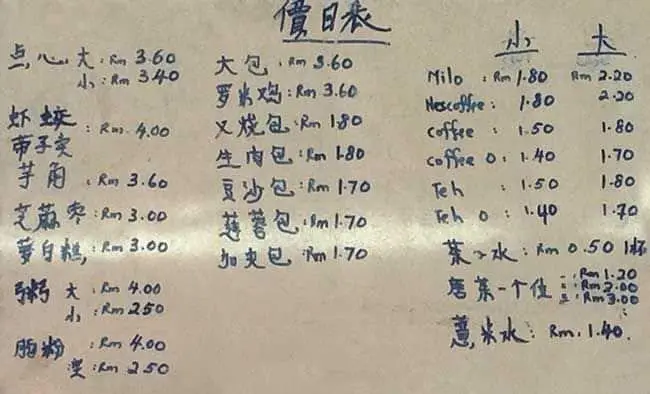 價目表
点心 大 : Rm 3.60
小 : Rm 3.40
虾饺 : Rm 4.00
带子卖
芋角 : Rm 3.60
芝蔴枣 : Rm 3.00
萝白糕 : Rm 3.00
粥 大 : Rm 4.00
小 : Rm 2.50
腸粉 : Rm 4.00
: Rm 2.50
大包 : Rm 3.60
罗米鸡 : Rm 3.60
叉烧包 : Rm 1.80
生肉包 : Rm 1.80
豆沙包 : Rm 1.70
莲蓉包 : Rm 1.70
加央包 : Rm 1.70
小 大
Milo : Rm 1.80 Rm 2.20
Nescoffee : 1.80 2.20
coffee : 1.50 1.80
coffee O : 1.40 1.70
Teh : 1.50 1.80
Teh O : 1.40 1.70
茶水 : Rm 0.50 1杯
唐茶一个位 一 : Rm 1.20
二 : Rm 2.00
三 : Rm 3.00
薏米水 : Rm 1.40